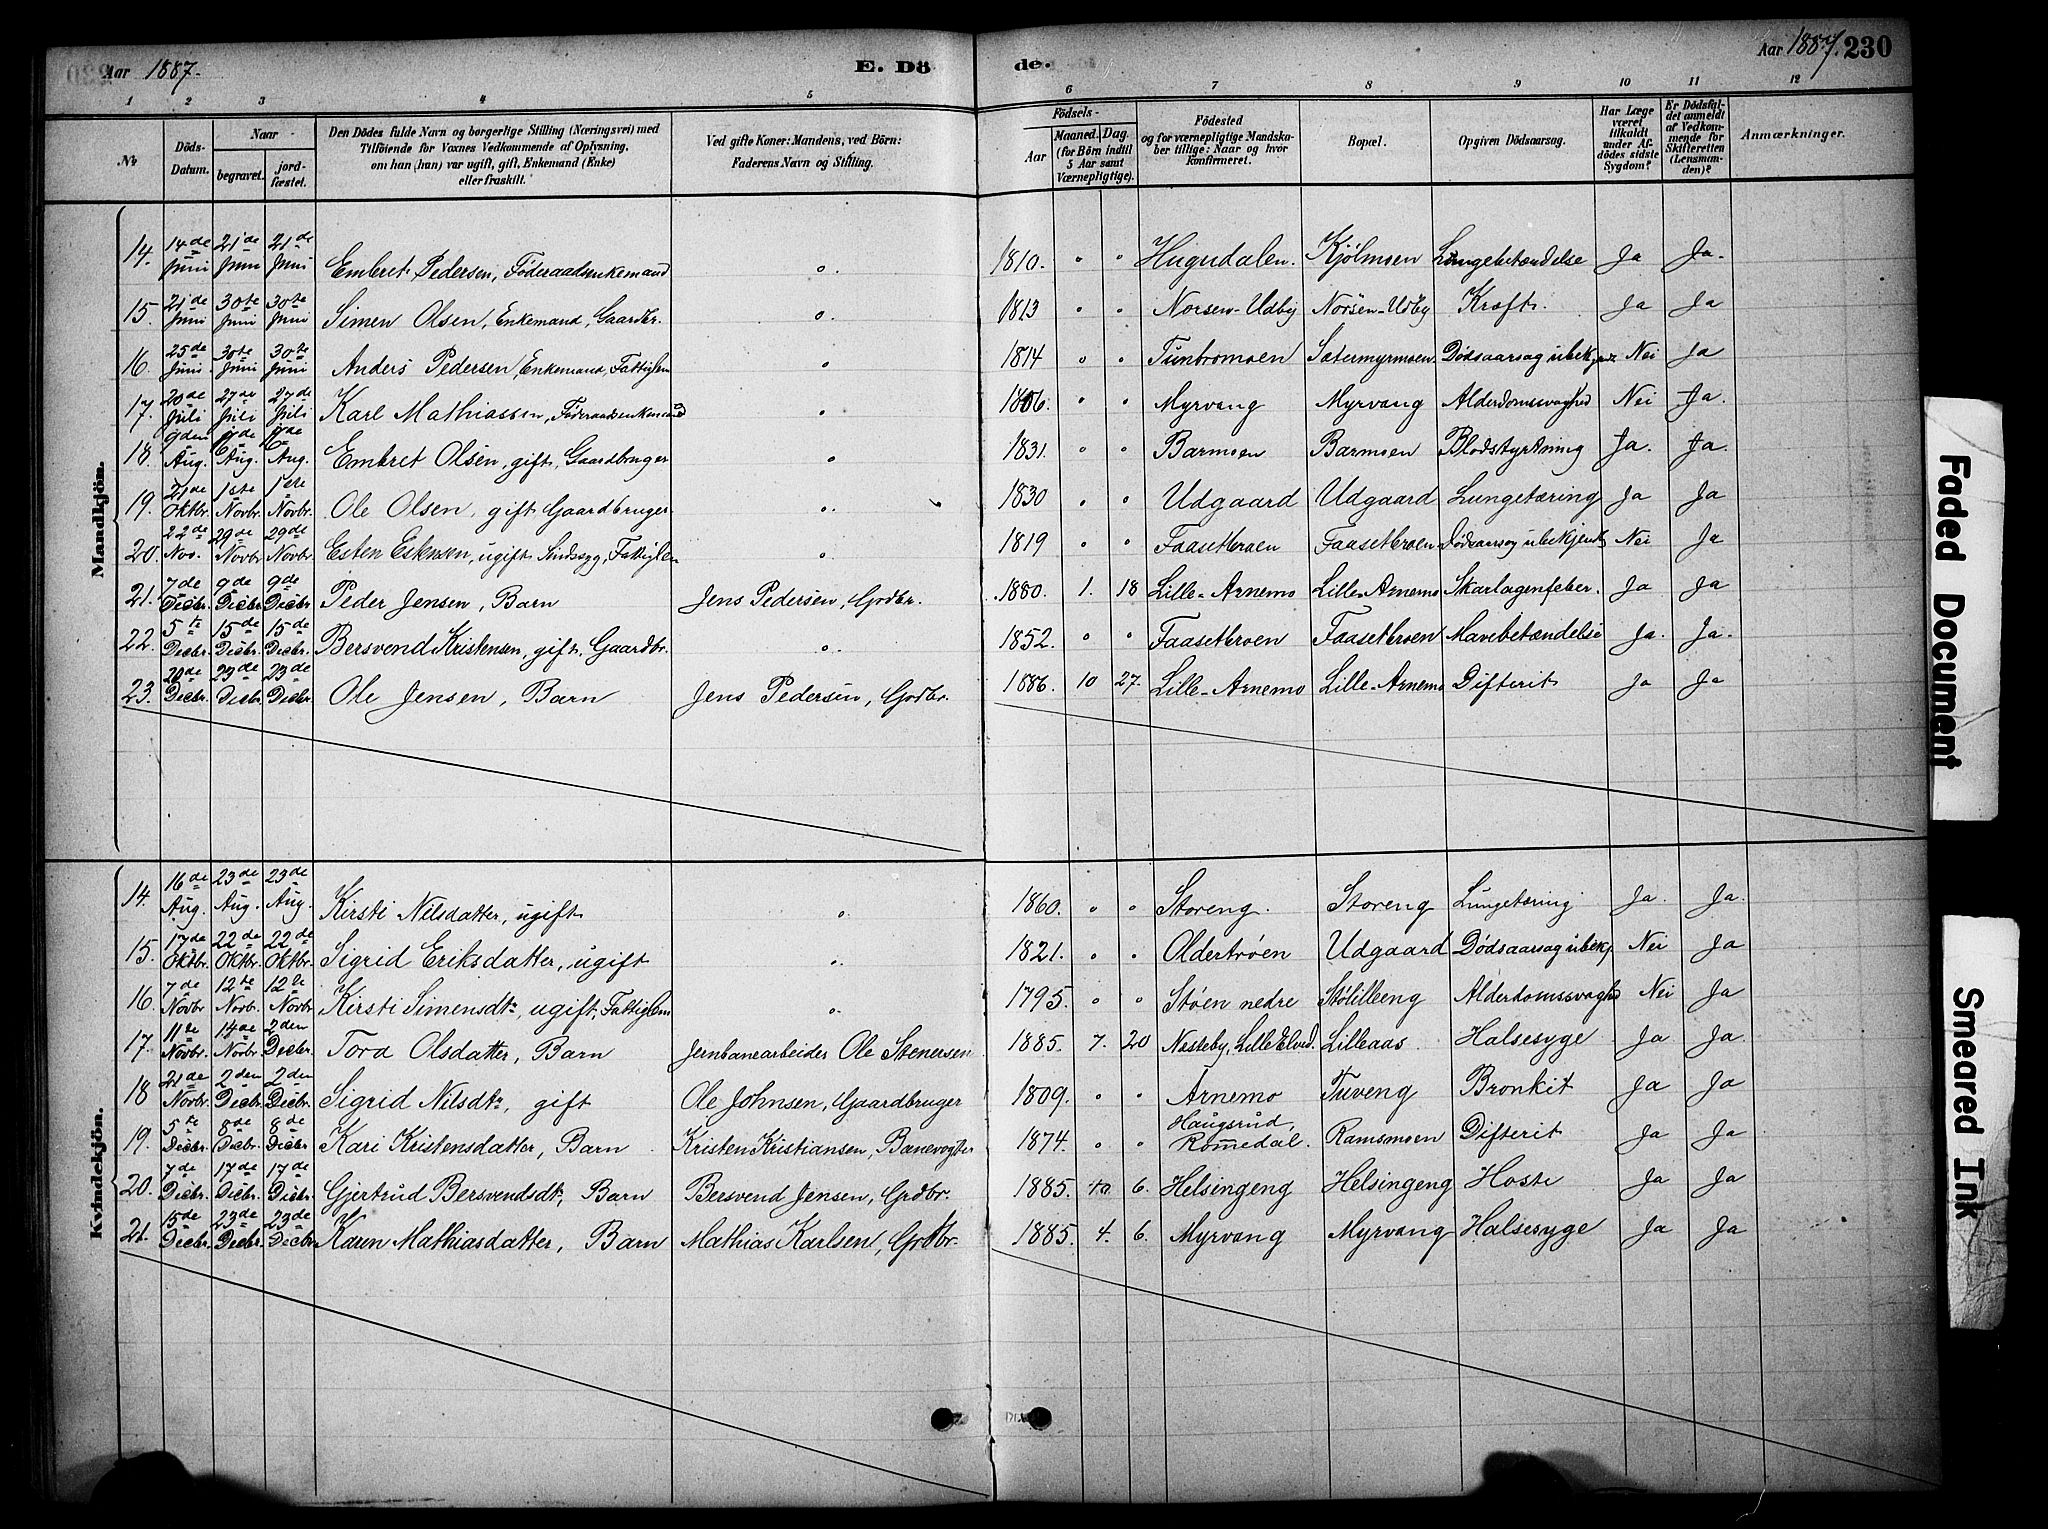 Aar 1887.
E. Dö de.
Aar 1887. 230
1 2 3 4 5 6 7 8 9 10 11 12
No
Döds-Datum.
Naar
begravet.
jord-fæstet.
Den Dödes fulde Navn og borgerlige Stilling (Næringsvei) med
Tilföiende for Voxnes Vedkommende af Oplysning,
om han (hun) var ugift, gift, Enkemand (Enke)
eller fraskilt.
Ved gifte Koner: Mandens, ved Börn:
Faderens Navn og Stilling.
Födsels-
Aar
Maaned. Dag.
(for Börn indtil
5 Aar samt
Værnepligtige).
Födested
og for værnepligtige Mandska-
ber tillige: Naar og hvor
Konfirmeret.
Bopæl.
Opgiven Dödsaarsag.
Har Læge
været
tilkaldt
under Af-
dödes sidste
Sygdom?
Er Dödsfal-
det anmeldt
af Vedkom-
mende for
Skifteretten
(Lensman-
den)?
Anmærkninger.
Mandkjön.
14. 14de Juni 21de Juni 21de Juni Embret Pedersen, Føderaadsenkemand " 1810. " " Hugudalen. Kjølmoen Lungebetændelse Ja Ja.
15. 21de Juni 30te Juni 30te Juni Simen Olsen, Enkemand, Gaardbr. " 1813 " " Norsen-Udby Norsen-Udby Kræft. Ja Ja
16. 25de Juni 30te Juni 30te Juni Anders Pedersen, Enkemand, Fattiglem " 1814 " " Tunbromoen Sætermyrmoen Dødsaarsag ubekj. Nei Ja
17. 20de Juli 27de Juli 27de Juli Karl Mathiassen, Føderaadsenkemand " 1806. " " Myrvang Myrvang Alderdomssvaghed Nei Ja.
18. 9den Aug. 17de Aug. 17de Aug. Embret Olsen, gift, Gaardbruger " 1831. " " Barmoen Barmoen Blodstyrtning Ja. Ja.
19. 21de Oktbr. 1ste Novbr. 1ste Novbr. Ole Olsen, gift Gaardbruger " 1830 " " Udgaard Udgaard Lungetæring Ja Ja
20. 22de Nov. 29de Novbr. 29de Novbr. Esten Estensen, ugift Sindssyg, Fattiglem " 1819 " " Faasetbroen Faasetbroen Dødsaarsag ubekjendt Nei Ja
21. 7de Decbr. 9de Decbr. 9de Decbr. Peder Jensen, Barn Jens Pedersen, Grdbr. 1880. 1. 18 Lille-Arnemo Lille-Arnemo Skarlagenfeber. Ja Ja
22. 5te Decbr. 15de Decbr. 15de Decbr. Bersvend Kristensen, gift, Gaardbr. " 1852. " " Faasetbroen Faasetbroen Mavebetændelse Ja. Ja.
23. 20de Decbr. 23de Decbr. 23de Decbr. Ole Jensen, Barn Jens Pedersen, Grdbr. 1886. 10 27. Lille-Arnemo Lille-Arnemo Difterit Ja Ja
Kvindekjön.
14. 16de Aug. 23de Aug. 23de Aug. Kirsti Nilsdatter, ugift " 1860. " " Storeng. Storeng Lungetæring Ja. Ja.
15. 17de Oktbr. 22de Oktbr. 22de Oktbr. Sigrid Eriksdatter, ugift " 1821. " " Oldertrøen Udgaard Dødsaarsag ubekj. Nei Ja
16. 7de Novbr 12te Novb. 12te Novbr Kirsti Simensdtr, ugift, Fattiglem " 1795. " " Støen nedre Stølilleng Alderdomssvaghd Nei Ja
17. 11de Novbr. 14de Novbr 2den Decbr. Tora Olsdatter, Barn Jernbanearbeider Ole Stenersen 1885. 7. 20 Næsteby, Lille Elvd. Lilleaas Halsesyge Ja Ja
18 21de Novbr. 2den Decbr. 2den Decbr. Sigrid Nilsdtr, gift Ole Johnsen, Gaardbruger 1809. " " Arnemo Tuveng Bronkit Ja Ja
19. 5te Decbr. 8de Decbr. 8de Decbr Kari Kristensdatter, Barn Kristen Kristiansen, Banevogter 1874. " " Haugsrud, Romedal. Ramsmoen Difterit Ja Ja
20. 7de Decbr. 17de Decbr. 17de Decbr. Gjertrud Bersvendsdt, Barn Bersvend Jensen, Grdbr. 1885. 10. 6. Helsingeng Helsingeng Hoste Ja Ja
21. 15de Decbr. 23de Decbr. 23de Decbr Karen Mathiasdatter, Barn Mathias Karlsen, Grdbr. 1885. 4. 6. Myrvang Myrvang Halsesyge Ja Ja
Faded Document
Smeared Ink